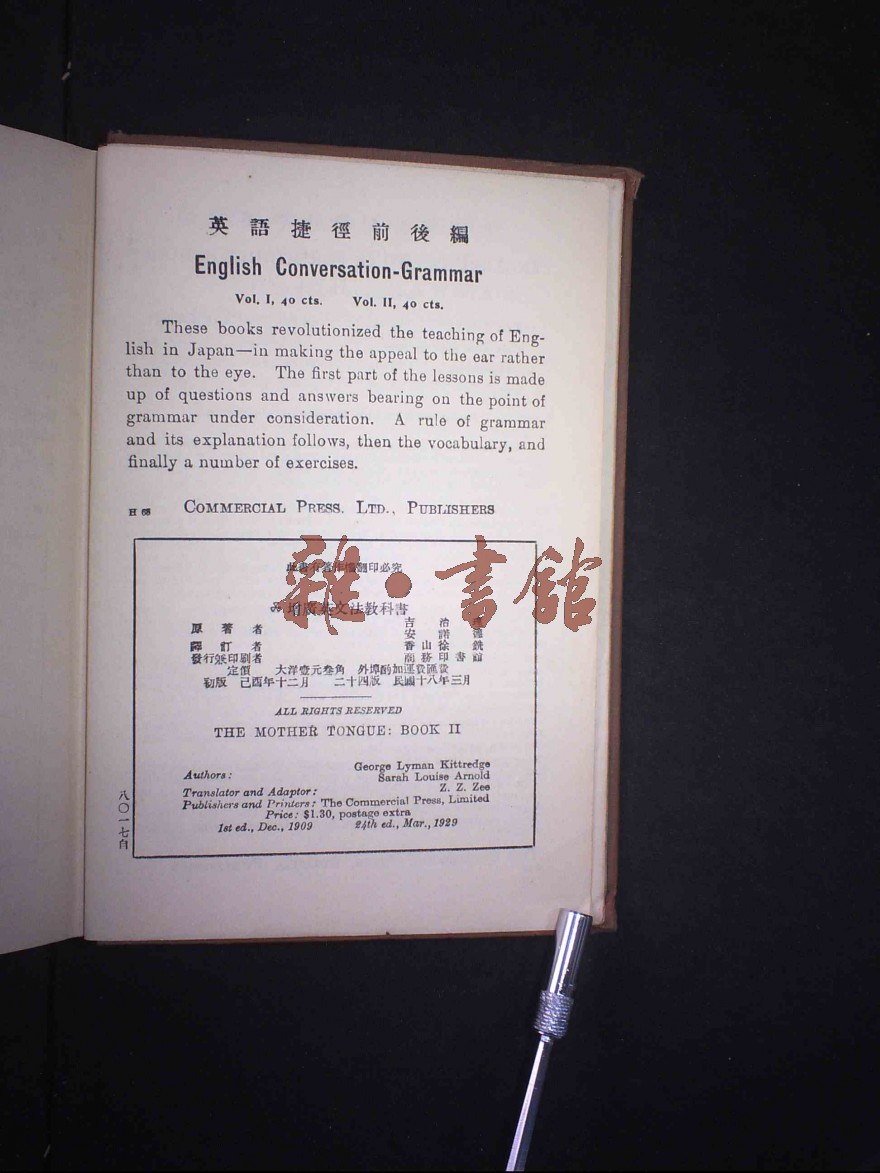 英語捷徑前後編
English Conversation-Grammar
Vol. I, 40 cts. Vol. II, 40 cts.
These books revolutionized the teaching of Eng-
lish in Japan—in making the appeal to the ear rather
than to the eye. The first part of the lessons is made
up of questions and answers bearing on the point of
grammar under consideration. A rule of grammar
and its explanation follows, then the vocabulary, and
finally a number of exercises.
H 68 COMMERCIAL PRESS. LTD., PUBLISHERS
此書有著作權翻印必究
增廣英文法教科書
原著者 吉治
安諾
譯訂者 香山徐銑
發行兼印刷者 商務印書館
定價 大洋壹元叁角 外埠酌加運費匯費
初版 己酉年十二月 二十四版 民國十八年三月
ALL RIGHTS RESERVED
THE MOTHER TONGUE: BOOK II
Authors: George Lyman Kittredge
Sarah Louise Arnold
Translator and Adaptor: Z. Z. Zee
Publishers and Printers: The Commercial Press, Limited
Price: $1.30, postage extra
1st ed., Dec., 1909 24th ed., Mar., 1929
八〇一七自
雜·書館